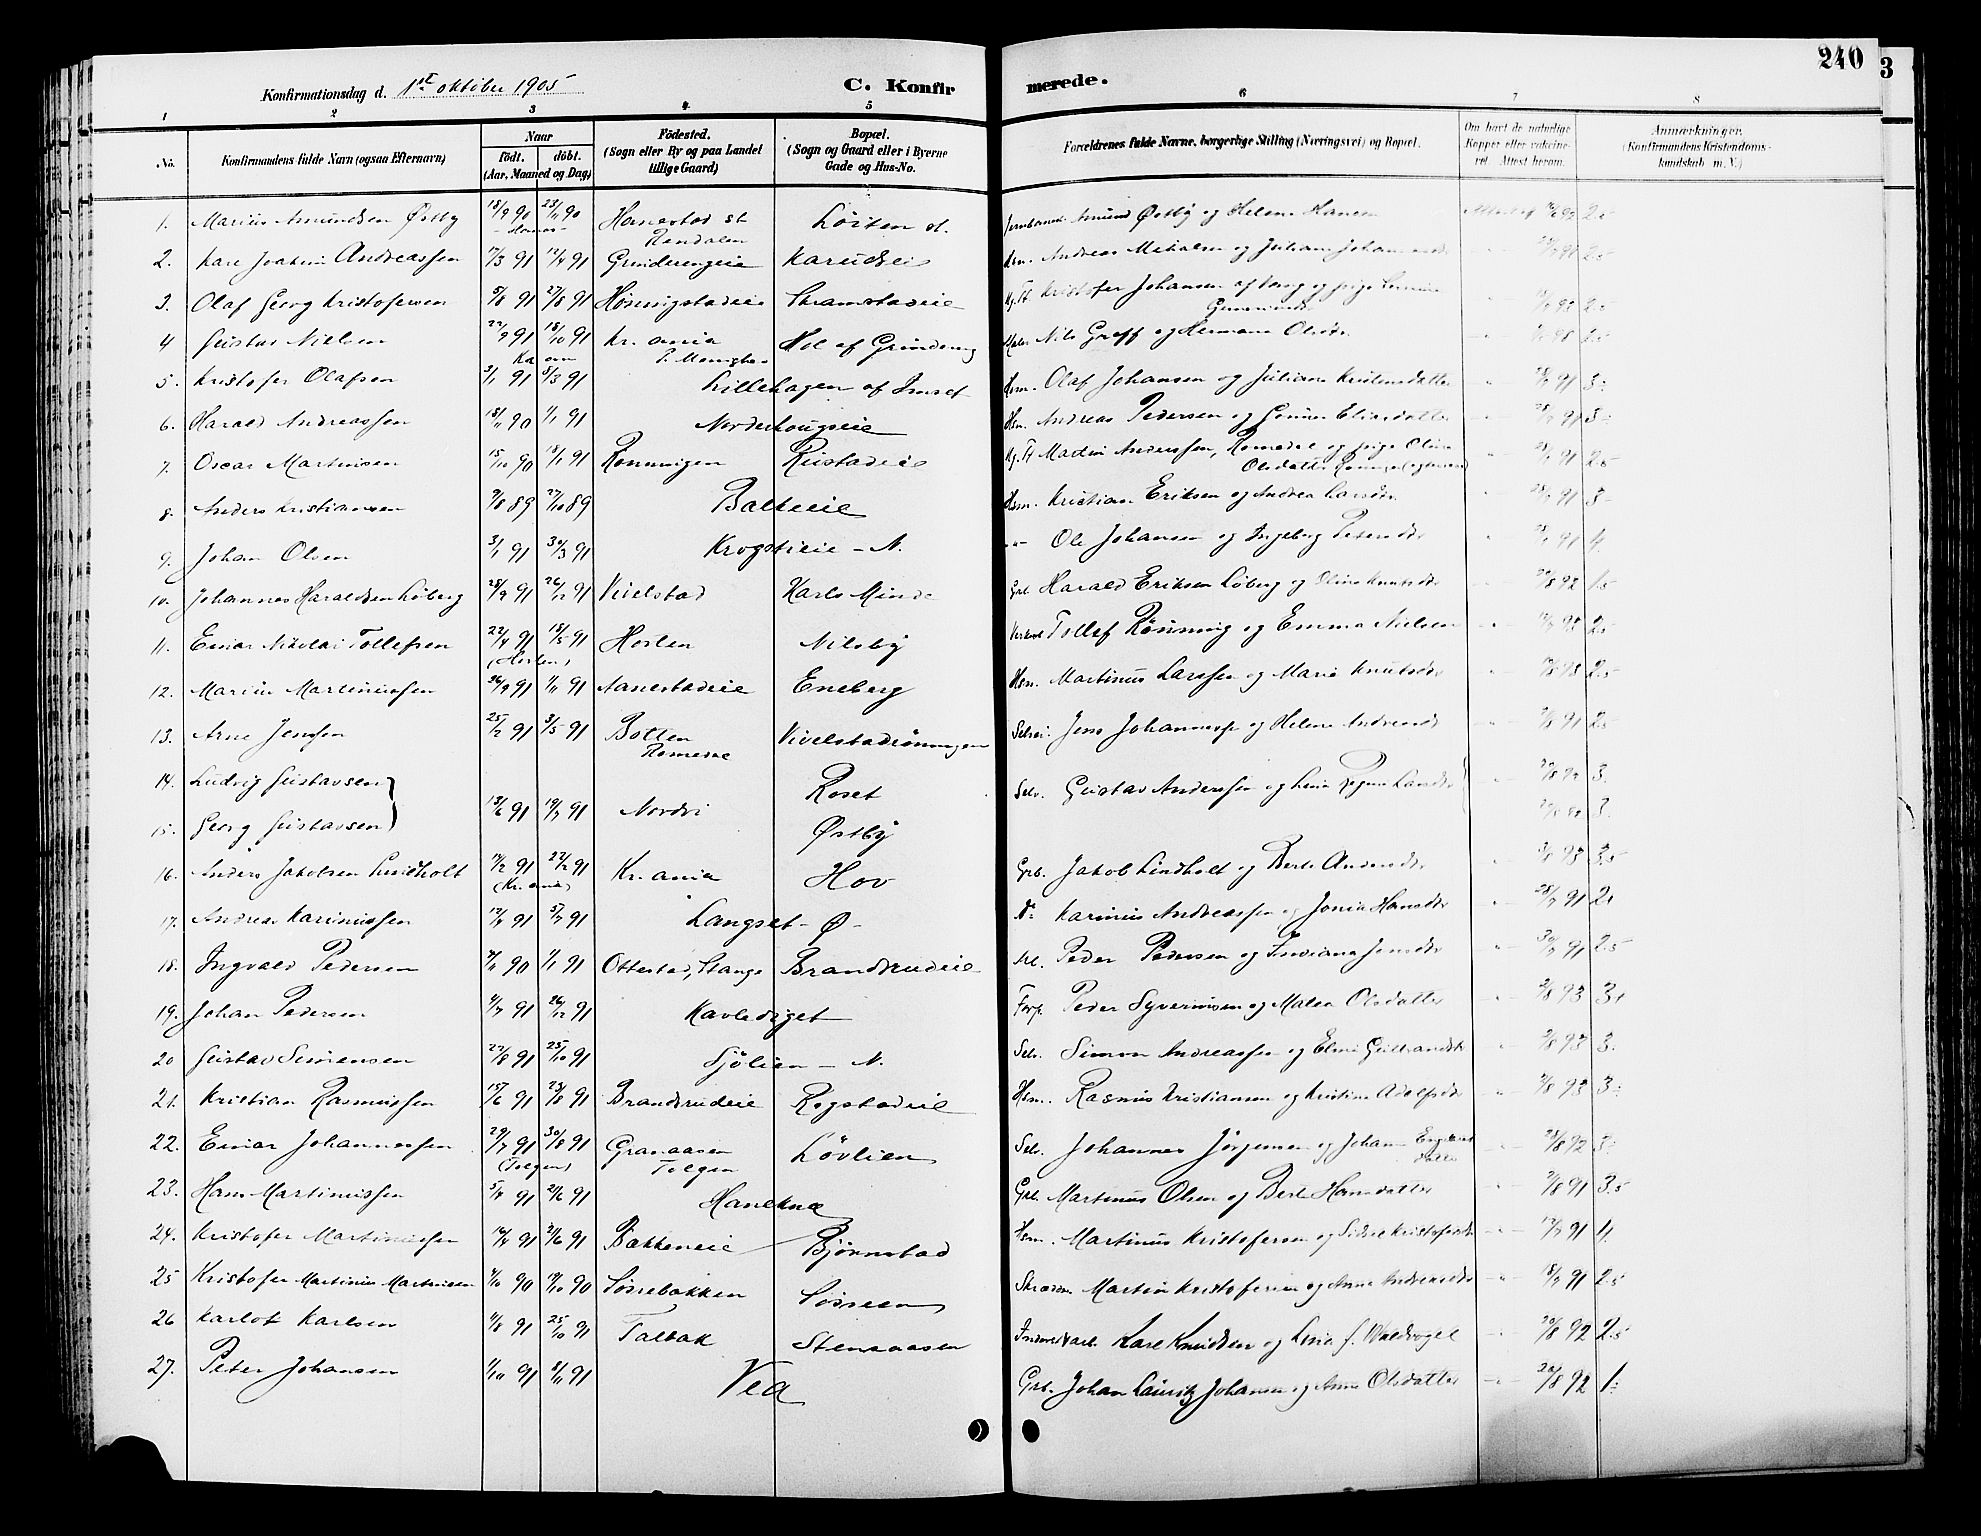 240
3
Konfirmationsdag d. 1st oktober 1905
C. Konfirmerede.
1 2 3 4 5 6 7 8
No.
Konfirmandens fulde Navn (ogsaa Efternavn)
Naar
födt. döbt.
(Aar, Maaned og Dag)
Födested.
(Sogn eller By og paa Landet
tillige Gaard)
Bopæl.
(Sogn og Gaard eller i Byerne
Gade og Hus-No.
Forældrenes fulde Navne, borgerlige Stilling (Næringsvei) og Bopæl.
Om havt de naturlige
Kopper eller vakcine-
ret. Attest herom.
Anmærkninger.
(Konfirmandens Kristendoms-
kundskab m. V.)
1. Marius Amundsen Østby 18/9 90 23/11 90 Hanestad st Løiten st. Amund Østby og Helene Hansen 2.5
Rendalen
2. Kare Joakim Andreassen 17/3 91 12/4 91 Grinderengeie Karudseie Hsm. Andreas Mikalsen og Juliane 2.5
3. Olaf Georg Kristofersen 5/8 91 27/8 91 Hørmigstadeie Skramstadeie Kristofer Johansen 2.5
4 Gustav Nielsen 22/9 91 18/10 91 Kr.ania Hol af Grindereng Nils Graff og Hermana Olsdtr 2.5
5. Kristofer Olafsen 3/1 91 8/3 91 Lillehagen af Imset Hsm. Olaf Johansen og Juliane Kristensdatter 3-
6. Harald Andreassen 18/11 90 1/1 91 Norderhougseie Hsm. Andreas Pedersen og Gunner Eliasdatter 3-
7. Oscar Martinsen 15/10 90 18/1 91 Rønningen Ristadeie Martin Anderssen, Romedal og pige Olina 2.5
Olsdatter
8. Anders Kristiansen 9/8 89 27/10 89 Balteeie Hsm. Kristian Eriksen og Andrea Larsdtr 3-
9. Johan Olsen 3/1 91 30/3 91 Krogstieie - N. Ole Johansen og Ingeborg Petersdtr 4.
10. Johannes Haraldsen Løberg 28/9 91 26/12 91 Vivelstad Karls Minde Grb. Harald Eriksen Løberg og Oline Knutsdtr 20/8 92 1.5
11. Einar Nikolai Tollefsen 22/4 91 18/5 91 Horten Nilsby Tollef Rønning og Emma Nielsen 2.5
(Horten)
12. Marius Martiniussen 26/9 91 1/11 91 Aanestadeie Eneberg Hsm. Martinus Larssen og Marie Knutsdtr 2.5
13. Arne Jenssen 25/2 91 3/5 91 Botten Vivelstadrønningen Jens Johannessen og Helene Andreasdtr 2/8 91 2.5
14. Ludvig Gustavsen Roset Selv. Gustav Anderssen og Lina Regine Larsdtr 3.
15. Georg Gustavsen 13/6 91 19/7 91 Nordvi Østby 3.
16. Anders Jakobsen Lindholt 11/2 91 22/2 91 Kr.ania Hov Grb. Jakob Lindholt og Berte Andersdtr 2/8 93 3.5
(Kr.ania)
17. Andreas Kariniussen 12/4 91 5/7 91 Langset - Ø - Karinius Andreassen og Jonia Hansdtr 28/7 91 2+
18. Ingvald Pedersen 4/11 90 1/1 91 Ottestad, Stange Brandrudeie Peder Pedersen og Indiana Jensdtr 91 2.5
19. Johan Pedersen 4/7 91 26/12 91 Kavlediget Forp. Peder Syversinsen og Malea Olsdatter 2/8 93 3+
20 Gustav Simensen 22/8 91 25/10 91 Sjølien - N. Selv. Simon Andreassen og Elina Gulbrandsdtr 2/8 93 3.
21. Kristian Rasmussen 15/6 91 23/8 91 Brandrudeie Rogstadeie Hsm. Rasmus Kristiansen og Kristine Adolfsdtr 2/8 93 3-
22. Einar Johannessen 29/7 91 30/8 91 Granaasen Løvlien Selv. Johannes Jørgensen og Johan 25/8 92 3-
(Tolgen) Tolgen
23. Hans Martinussen 5/4 91 21/6 91 Hanekne Grb. Martinus Olsen og Berte Hansdatter 2/8 91 3.5
24. Kristofer Martiniussen 16/4 91 21/6 91 Bakkeneie Bjørnstad Hsm. Martinus Kristofersen og Sidsel Kristofersdtr 17/7 91 4.
25 Kristofer Martinius Martinsen 4/10 90 19/10 90 Sørrebakken Sørreen Skrædder Martin Kristofersen og Anne Andreasdtr 18/7 91 2.5
26 Karlot Karlsen 4/8 91 25/10 91 Talbak Stensaasen Karl Knudsen og Lina f. Waldvogel 20/8 92 2.5
27. Peter Johansen 1/10 91 8/11 91 Vea Grb. Johan Lauritz Johansen og Anne Olsdatter 20/8 92 1-